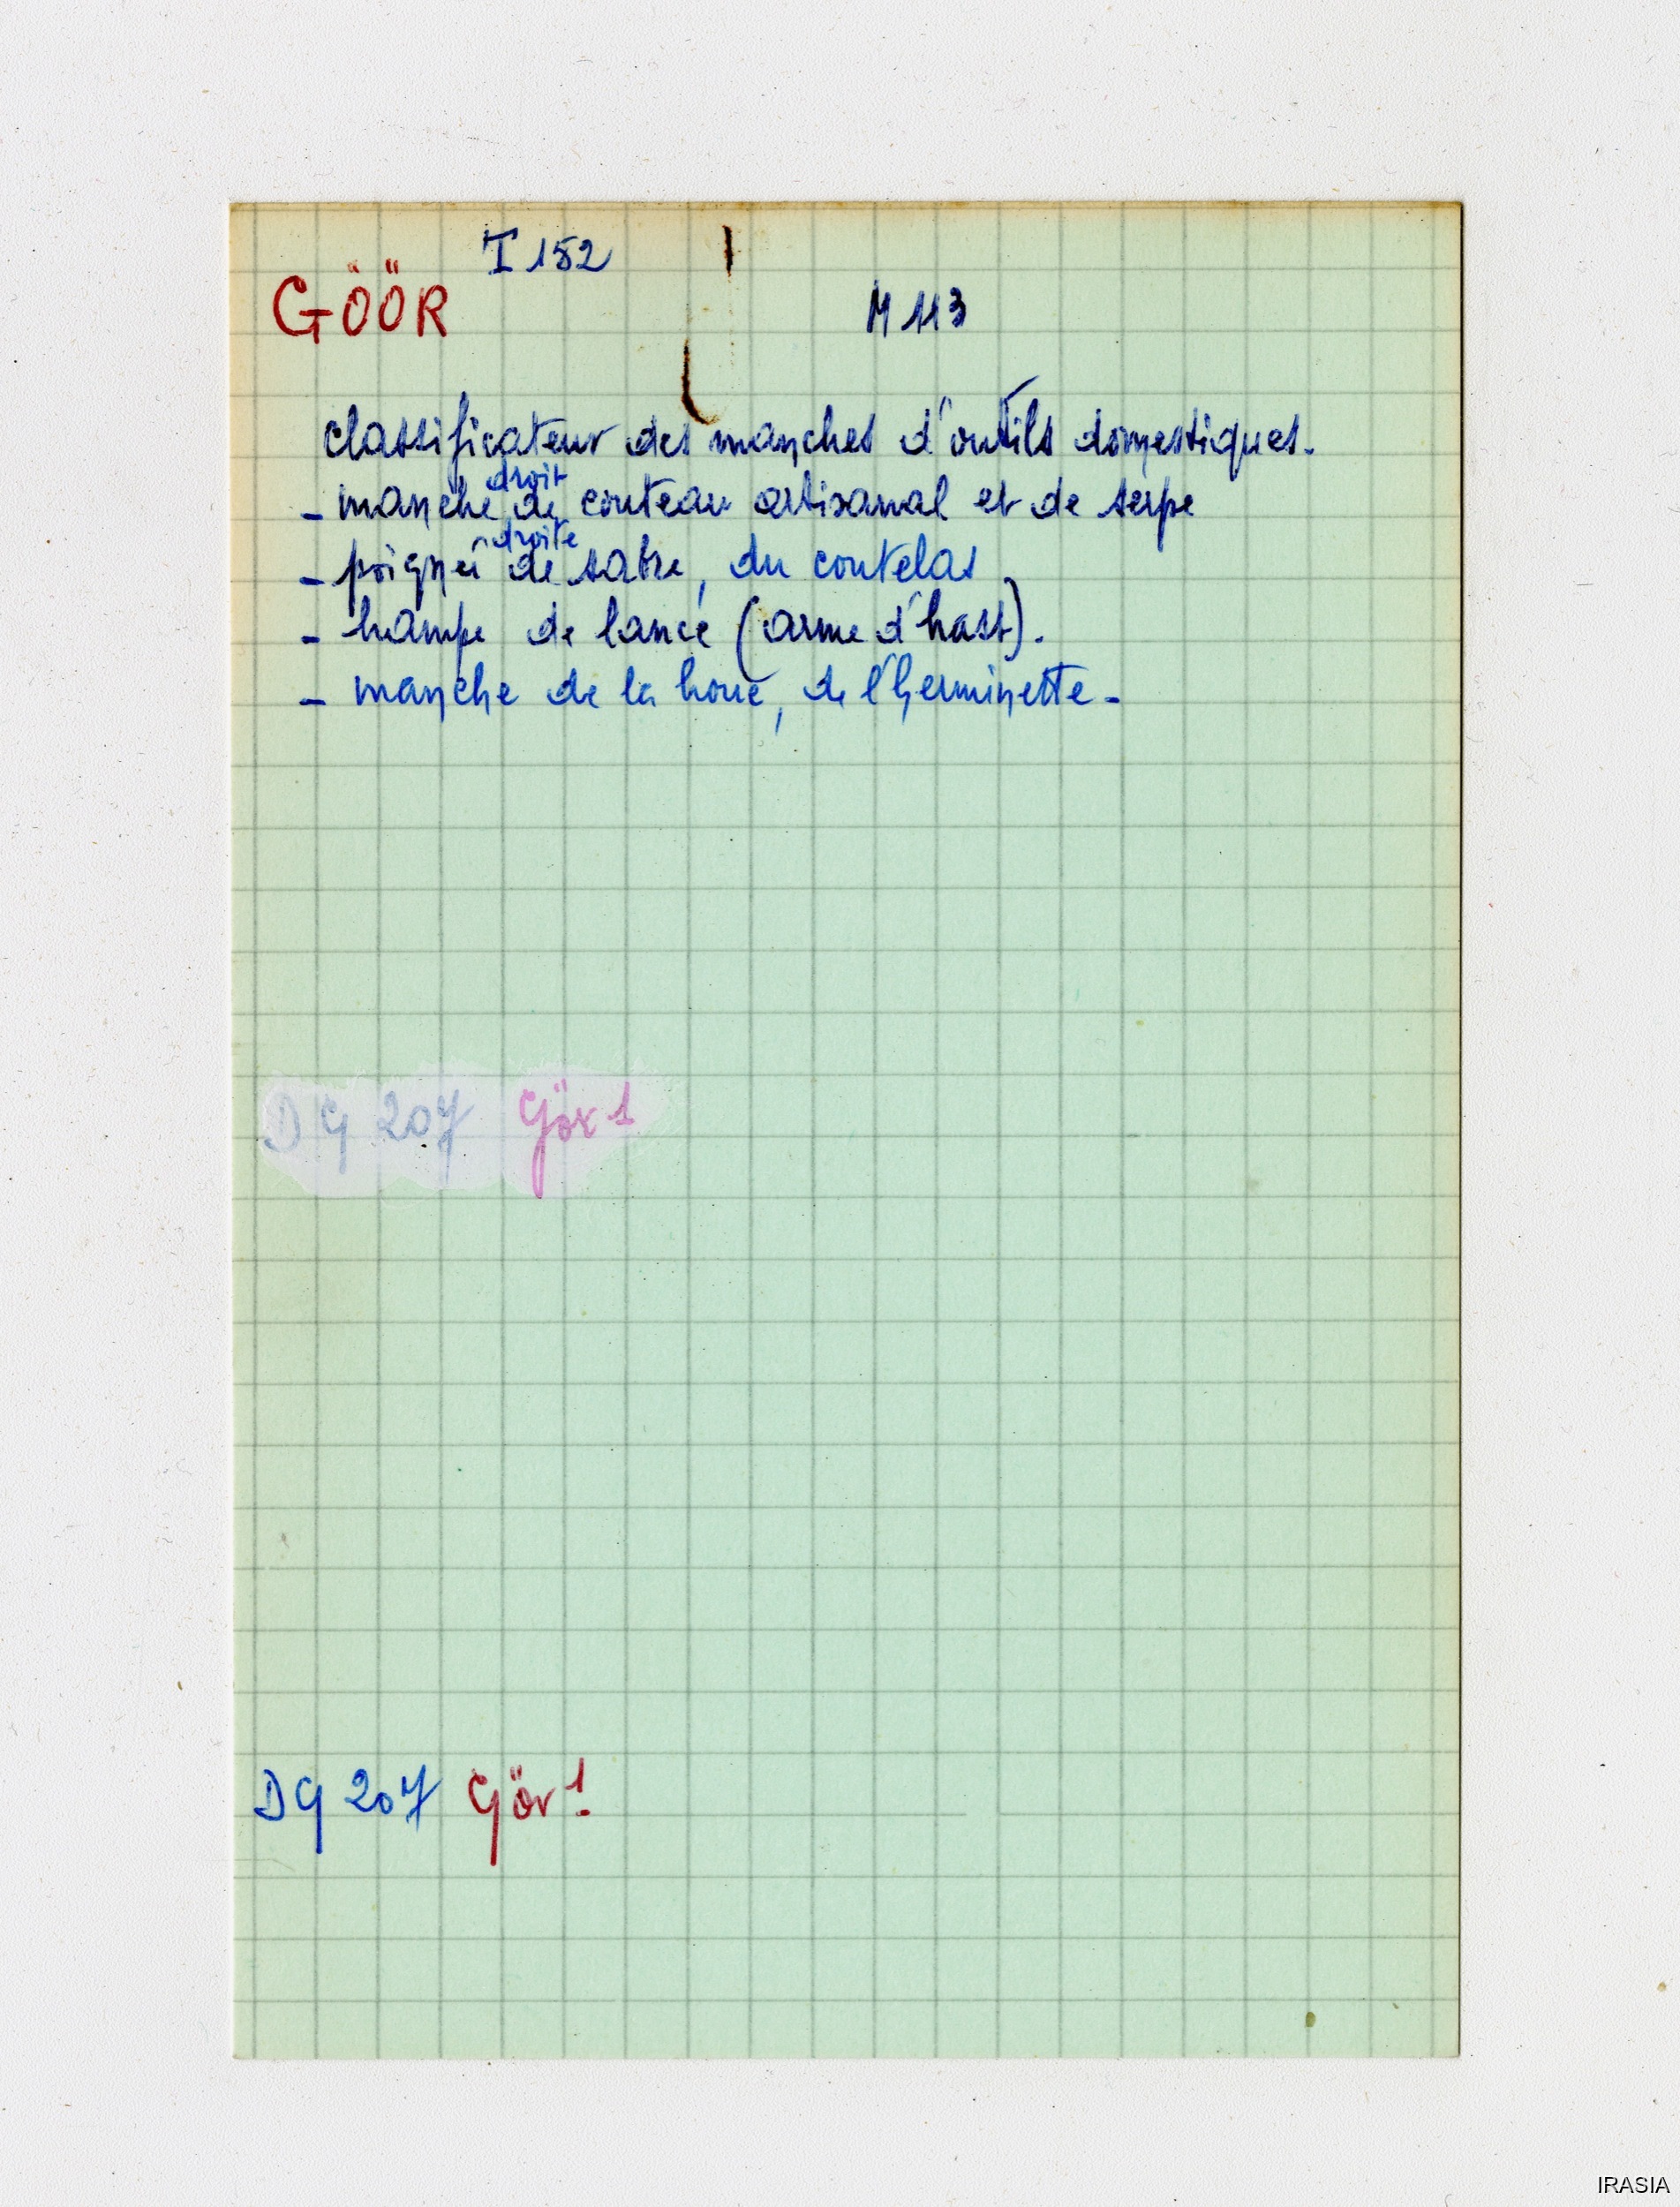 I 152
GÖÖR
M 113
classificateur des manches d'outils domestiques.
droit
- manche de couteau artisanal et de serpe
droite
- poignée de sabre, du coutelas
- hampe de lance (arme d'hast).
- manche de la houe, de l'herminette -
DG 207 Gör 1
DG 207 Gör 1
IRASIA